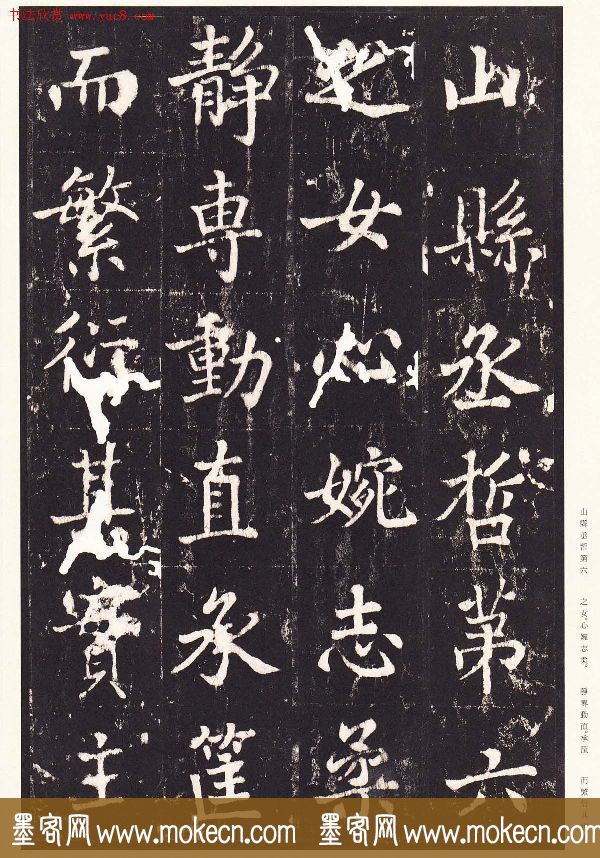 书法欣赏 www.yac8.com
山縣丞哲第六
之女心婉志柔
靜專動直承筐
而繁衍其實主
山縣丞哲第六 之女。心婉志柔。 靜專動直。承筐
墨客网 www.mokecn.com 墨客网 www.mokecn.com